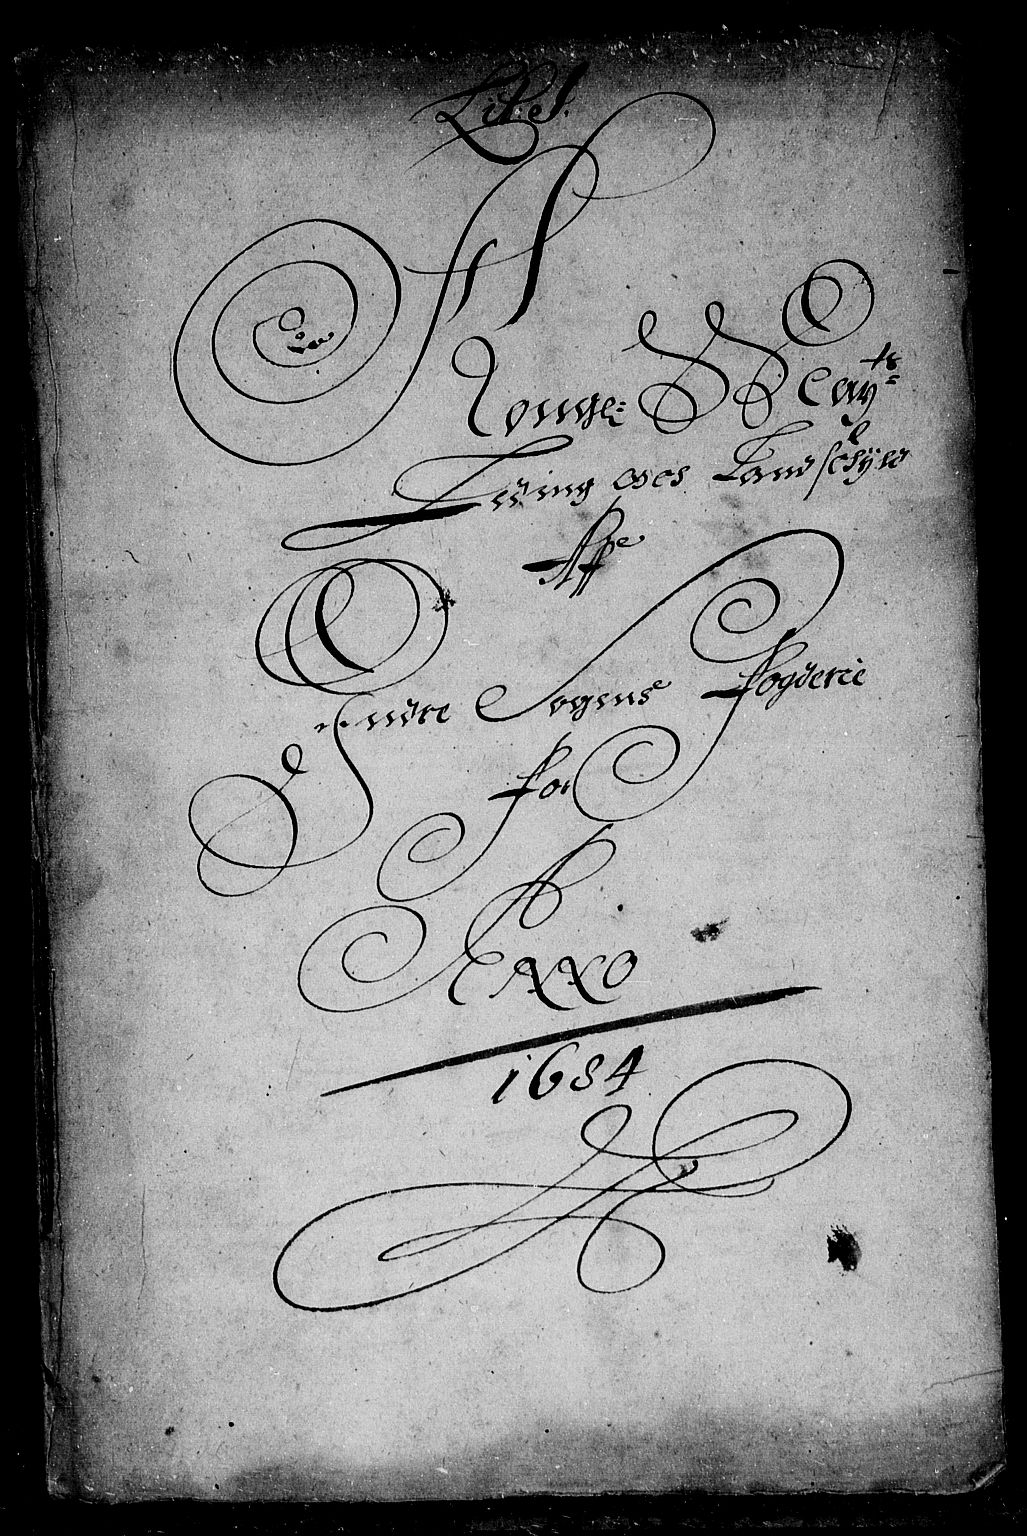 Lit: J:
Konge: Mayts:
Leding och Landschyld
Aff
Indre Sogens Fogderie
for
Anno
1684